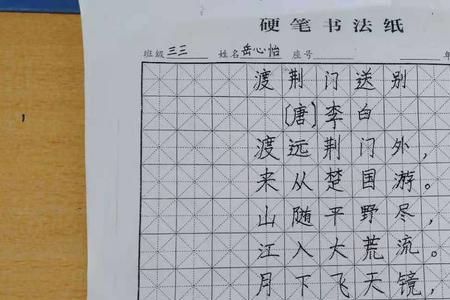 硬笔书法纸
班级 三三 姓名 岳心怡 座号 年
渡荆门送别
[唐]李白
渡远荆门外，
来从楚国游。
山随平野尽，
江入大荒流。
月下飞天镜，